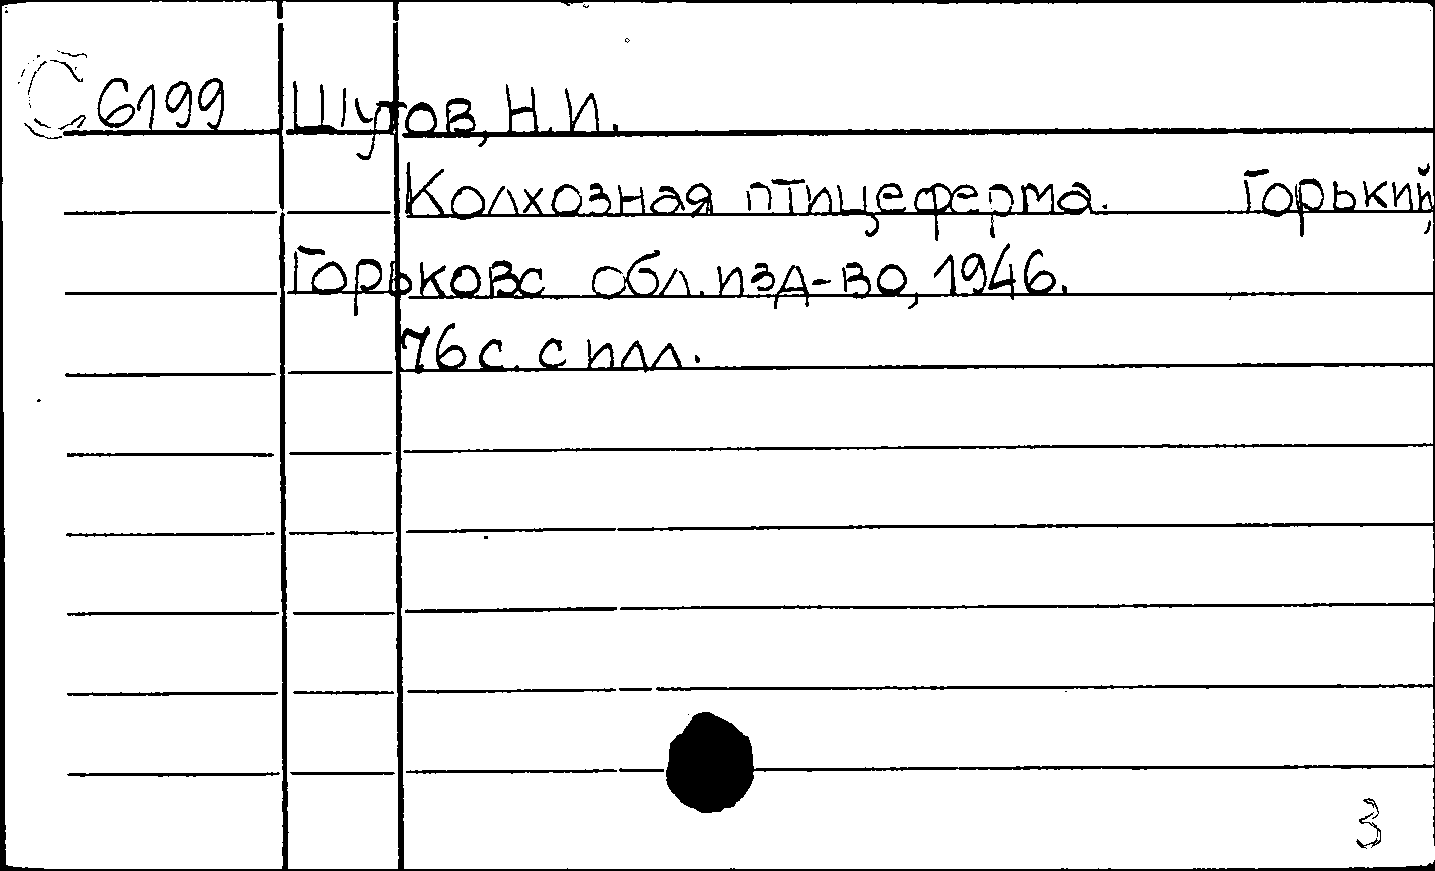 С 6199 Шутов, Н.И.
Колхозная птицеферма. Горький,
Горьковс обл. изд-во, 1946.
76 с. с илл.
3